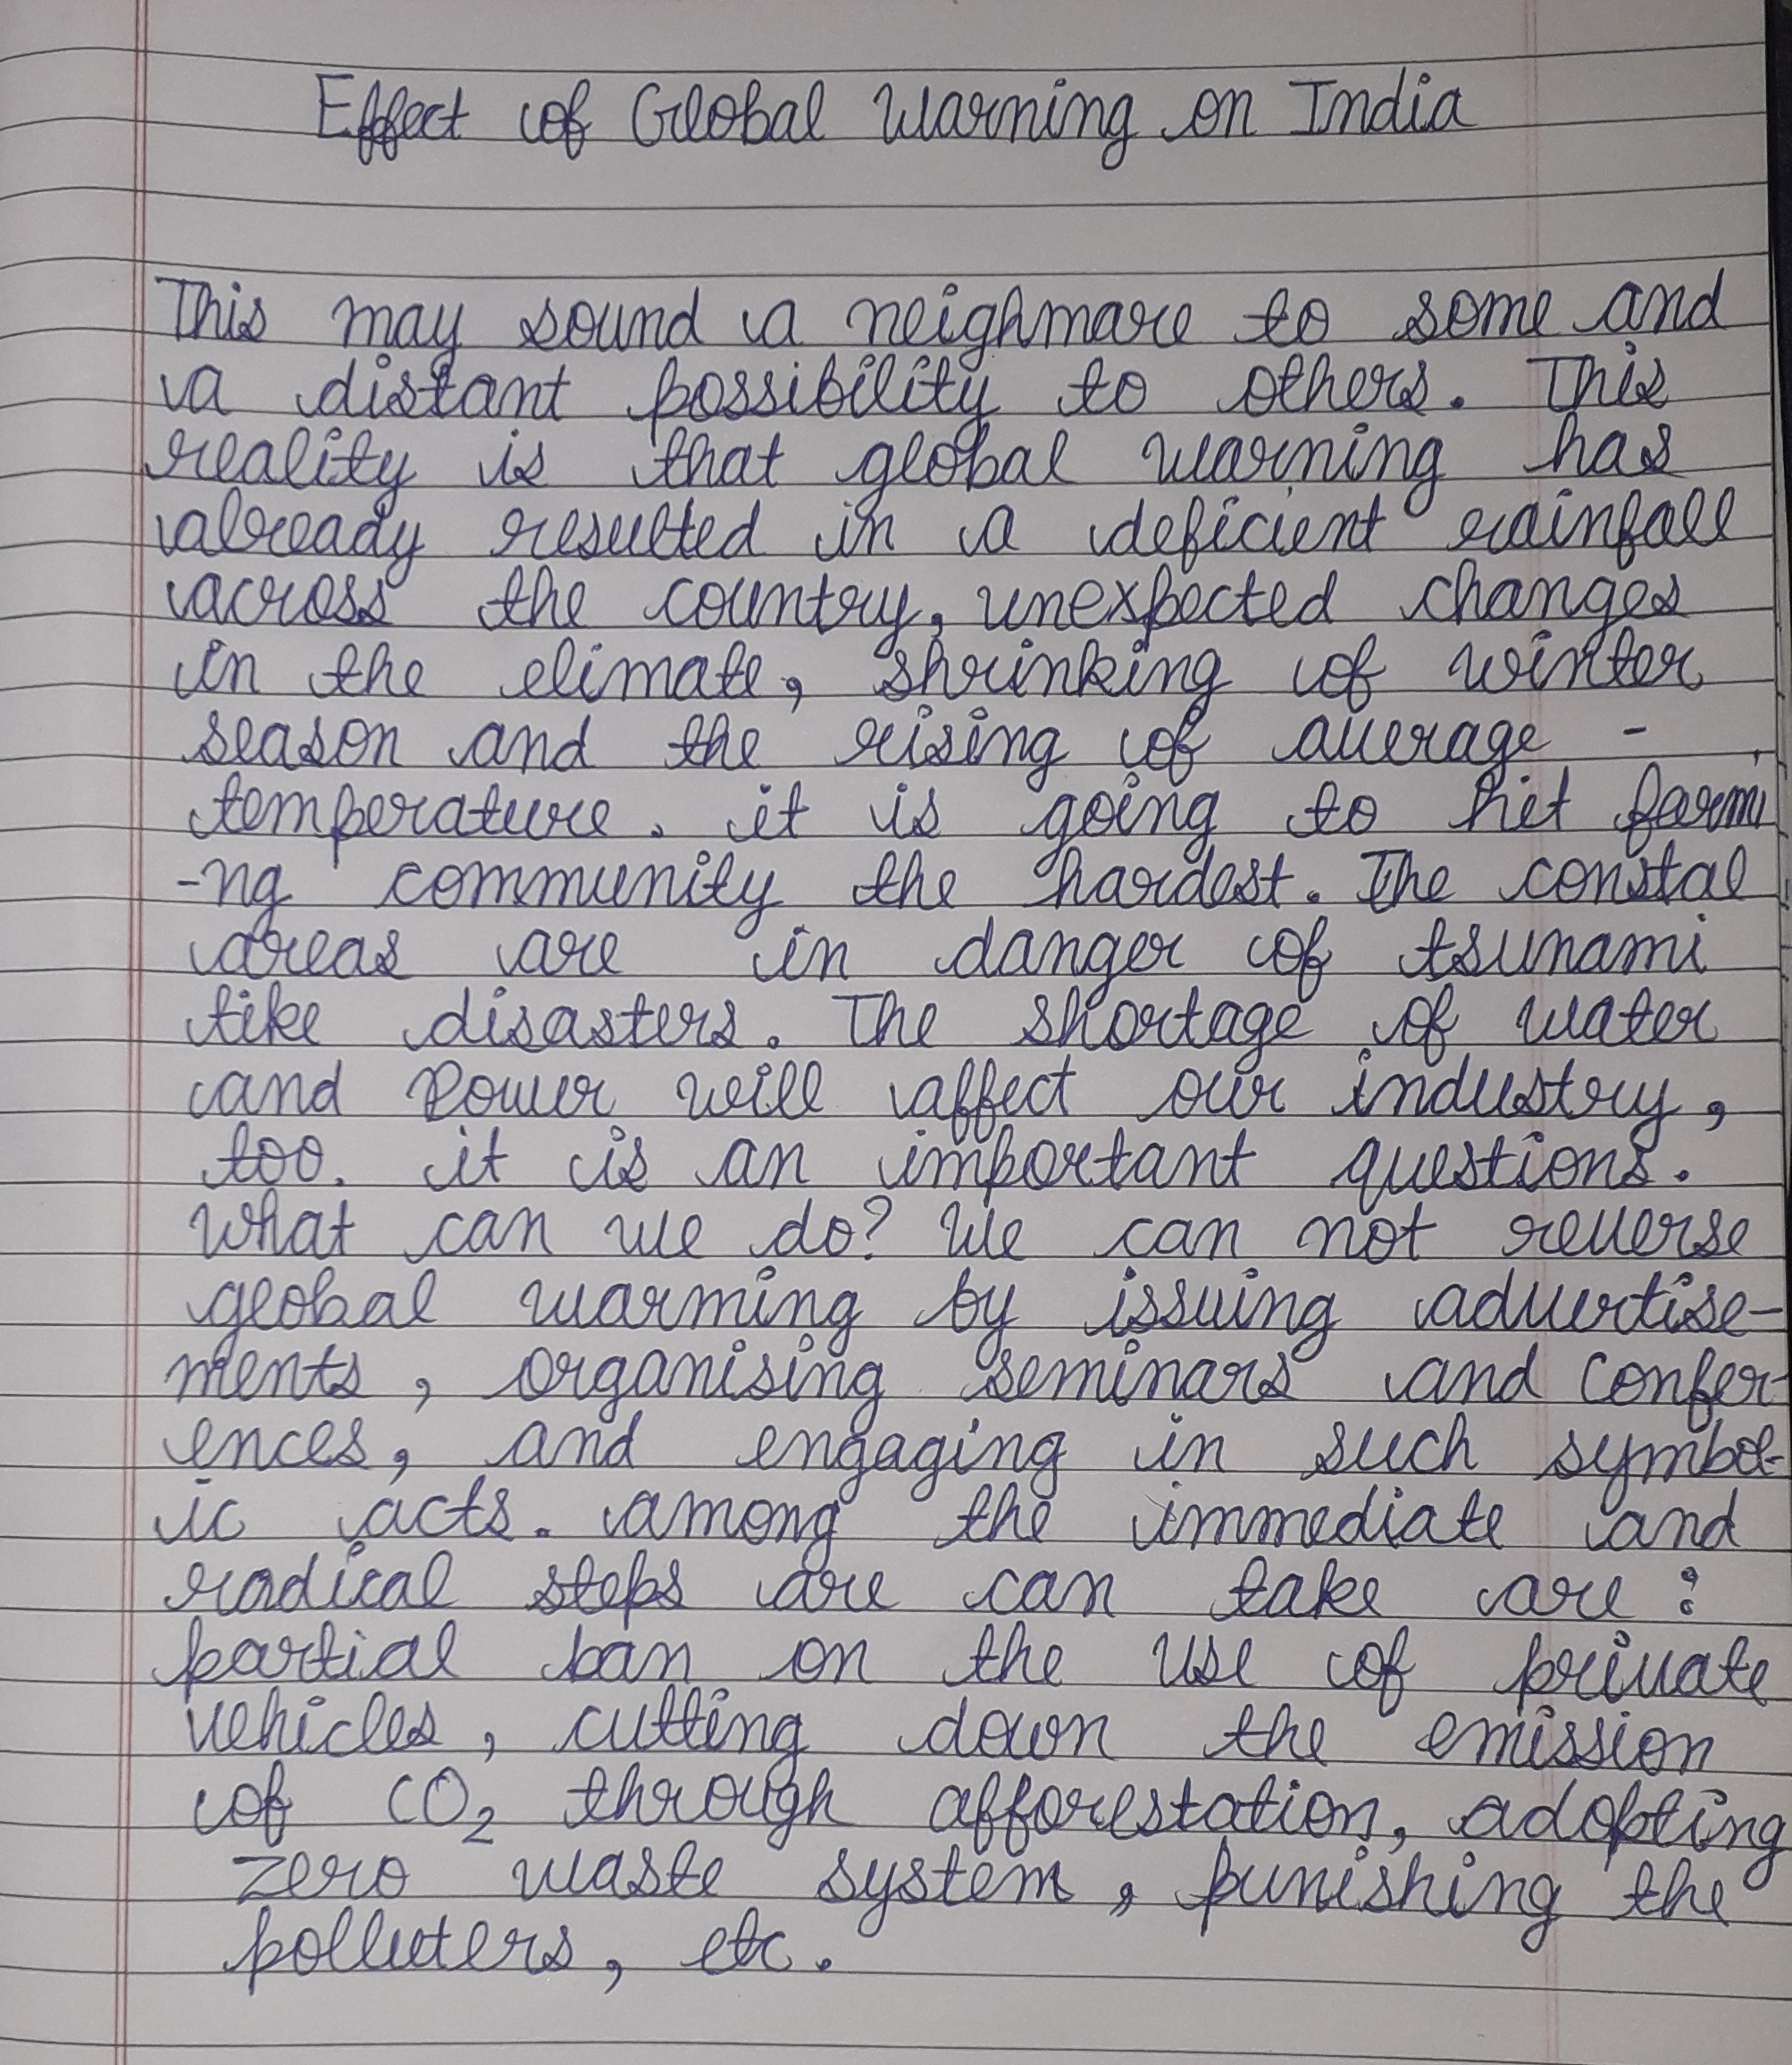 Effect of Global Warning on India
This may sound a neighmare to some and
a distant possibility to others. This
reality is that global warning has
already resulted in a deficient rainfall
across the country, unexpected changes
in the elimate, shrinking of winter
season and the rising of average -
temperature. it is going to hit farmi
-ng community the hardest. The constal
areas are in danger of tsunami
tike disasters. The shortage of water
and Power will affect our industry,
too. it is an important questions.
What can we do? We can not reverse
global warming by issuing advertise-
ments, organising seminars and confer-
ences, and engaging in such symbol-
ic acts. among the immediate and
radical steps are can take are :
partial ban on the use of private
vehicles, cutting down the emission
of CO₂ through afforestation, adopting
zero waste system, punishing the
polluters, etc.